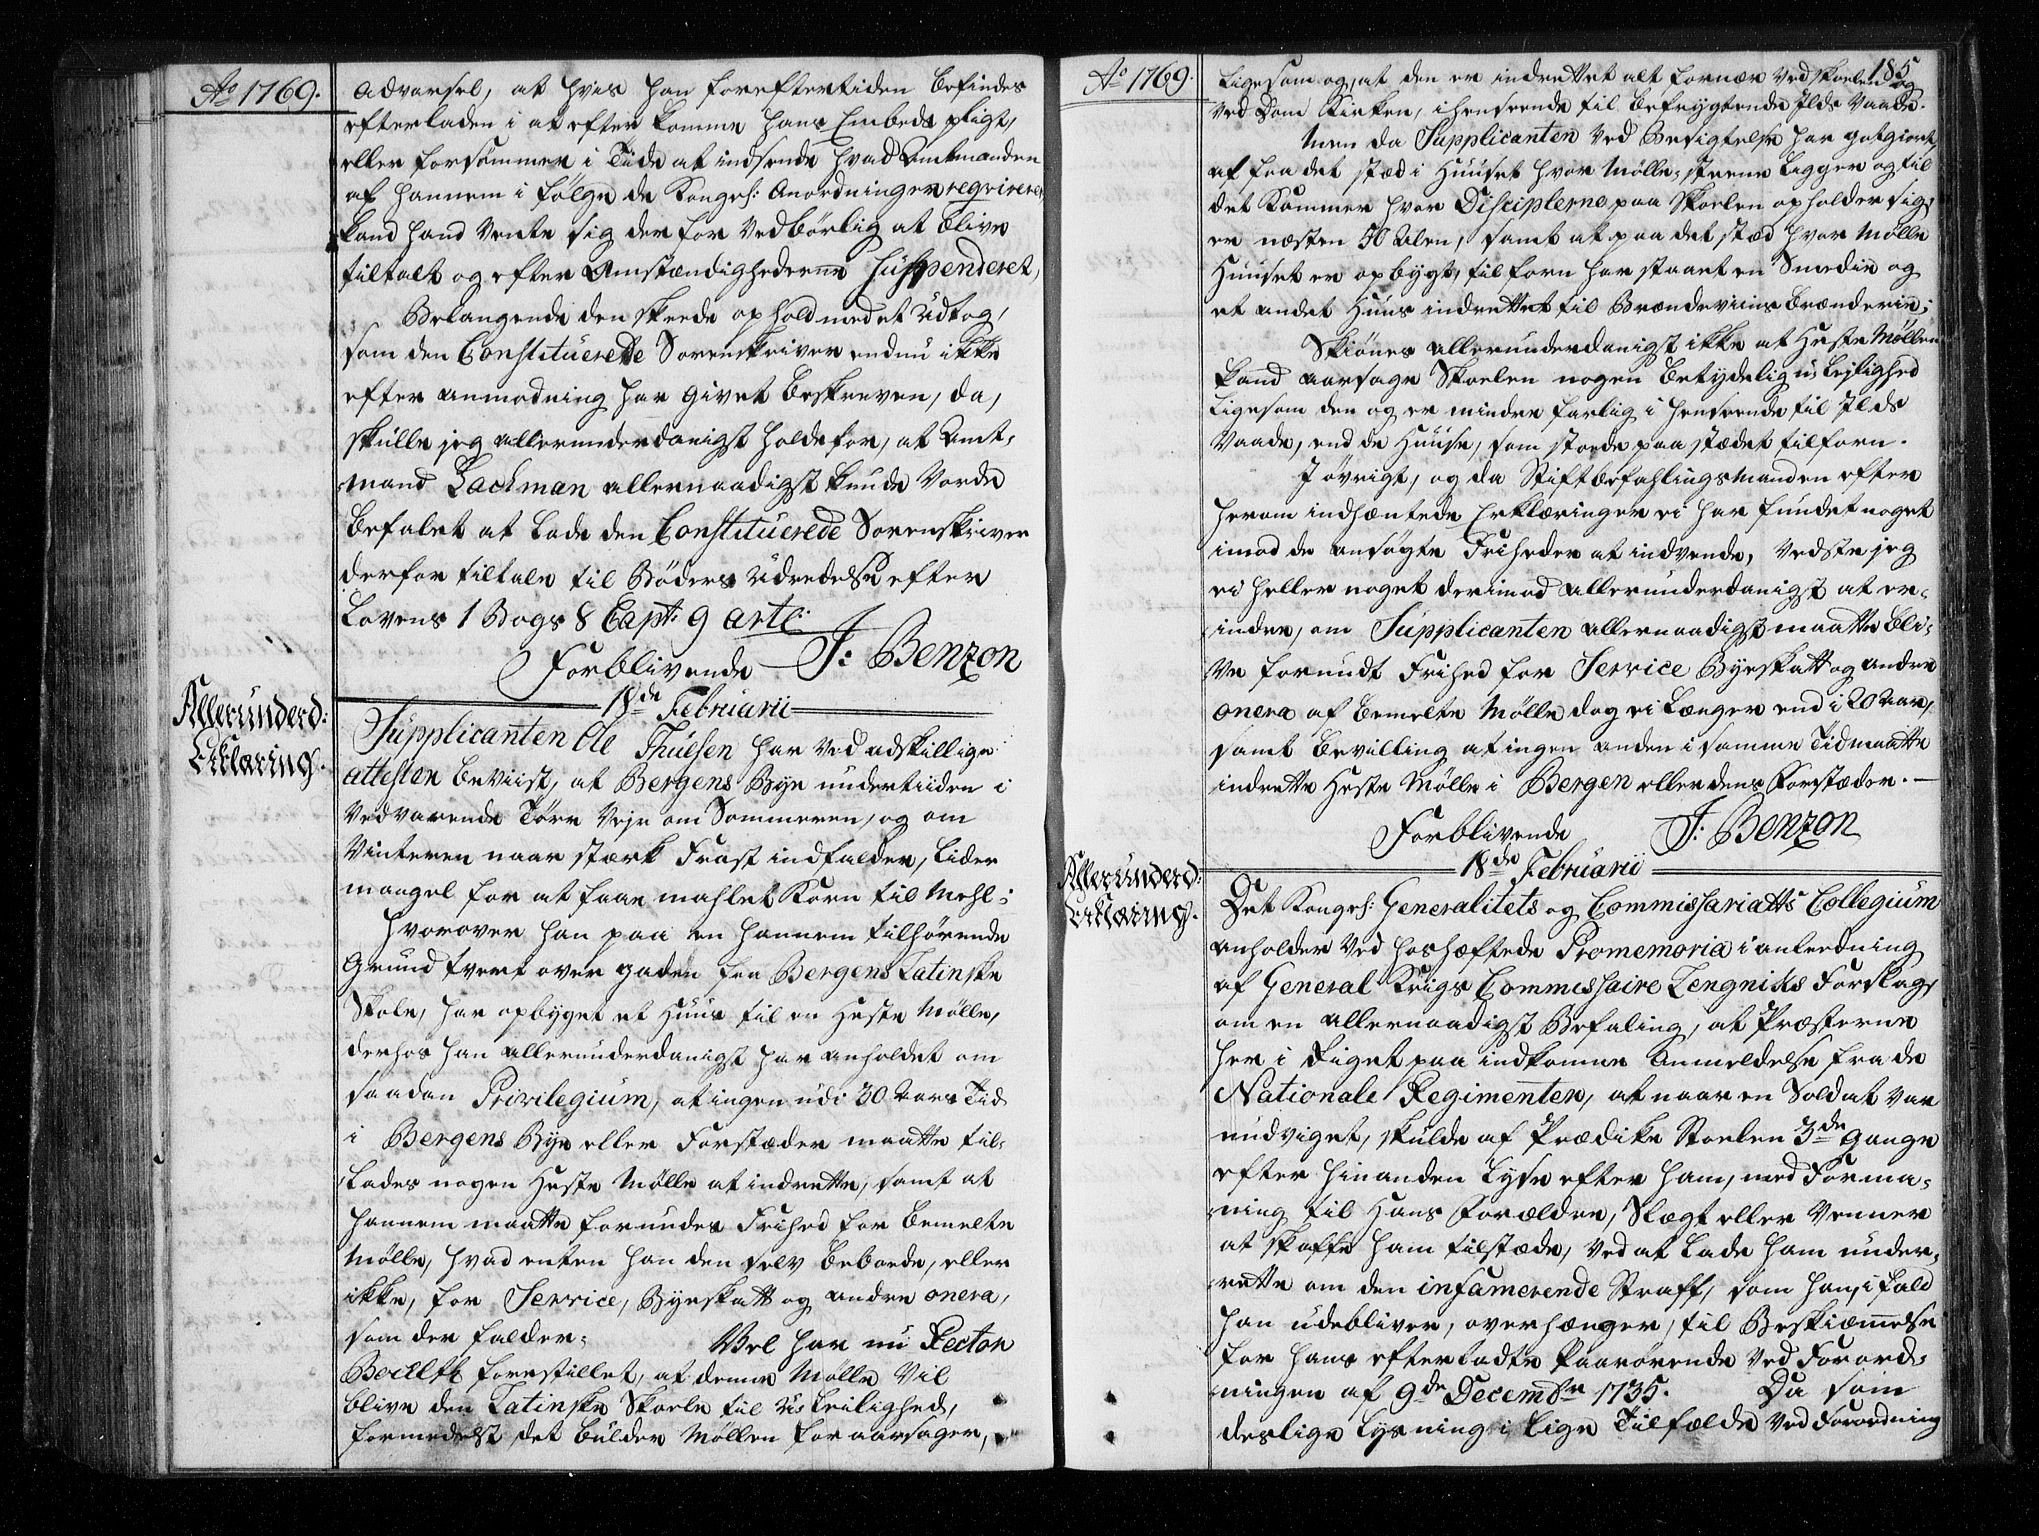 Ao 1769.
Advarsel, at hvis han for eftertiden befindes
efterladen i at efter komme hans Embeds pligt,
eller forsømmer i Tide at indsende hvad Amtmanden
af hannem i følge de Kongel: Anordninger reqvirerer,
kand hand vente sig derfor vedbørlig at blive
tiltalt og efter Omstændighederne suspenderet,
Belangende den skeede ophold med et Udtog,
som den Constituerede Sorenskriver endnu ikke
efter anmodning har givet beskreven, da,
skulle jeg allerunderdanigst holde for, at Amt-
mand Lachman allernaadigst kunde vorde
befalet at lade den Constituerede Sorenskriver
derfor tiltale til Bøders Udredelse efter
Lovens 1 Bogs 8 Capt: 9 artc:
Forblivende J: Benzon
18de Februarii
Allerunderd:
Erklæring.
Supplicanten Ole Thuesen har ved adskillige
attester beviist, at Bergens Bye undertiiden i
vedvarende Tørr Vejr om Sommeren, og om
Vinteren naar stærk Frost indfalder, lider
mangel for at faae mahlet Korn til Mehl;
hvorover han paa en hannem tilhørende
Grund tvert over gaden fra Bergens Latinske
Skole, har opbyget et Huus til en Heste Mølle,
derhos han allerunderdanigst har anholdet om
saadan Privilegium, at ingen udi 30 Aars Tid
i Bergens Bye eller Forstæder maatte til-
lades nogen Heste Mølle at indrette, samt at
hannem maatte forundes Frihed for bemelte
Mølle, hvad enten han den selv beboede, eller
ikke, for Service, Byeskatt og andre onera,
som der falder; Vel har nu Rector
Boalth forestillet, at denne Mølle vil
blive den Latinske Skoele til U-leilighed,
formedelst det bulder Møllen foraarsager,
Ao 1769.
185
ligesom og, at den er indrettet alt fornær ved Skoelen og
ved Dom Kirken, i henseende til befrygtende Ilds Vaade.
Men da Supplicanten ved Besigtelse har godtgiort,
at fra det stæd i Huuset hvor Mølle-steene ligger og til
det Kammer hvor Disciplerne paa Skoelen opholder sig,
er næsten 50 Alen, samt at paa det stæd hvor Mølle
Huuset er opbygt, tilforn har staaet en Smedie og
et andet Huus indrettet til Brændeviins brænderie;
Skiønes allerunderdanigst ikke at Heste Møllen
kand aarsage Skoelen nogen betydelig u-lejlighed
ligesom den og er mindre farlig i henseende til Ilds
Vaade, end de Huuse, som stoede paa stædet tilforn.
I øvrigt, og da Stiftbefahlingsmanden efter
herom indhæntede Erklæringer ei har fundet noget
imod de ansøgte Friheder at indvende, vedste jeg
ei heller noget derimod allerunderdanigst at er-
indre, om Supplicanten allernaadigst maatte bli-
ve forundt Frihed for Service Byeskatt og andre
onera af bemelte Mølle dog ei længer end i 20 Aar,
samt bevilling at ingen anden i samme Tid maatte
indrette Heste Mølle i Bergen eller dens Forstæder.
Forblivende J: Benzon
18de Februarii
Allerunderd:
Erklæring.
Det Kongel: Generalitets og Commissariatts Collegium
anholder ved hoshæftede Promemoria i anleedning
af General Krigs Commissaire Lengniks Forslag,
om en allernaadigst Befaling, at Præsterne
her i Riget paa indkomne Anmeldelse fra de
Nationale Regimenter, at naar en Soldat var
undviget, skulde af Prædike Stoelen 3de gange
efter hinanden lyse efter ham, med Forma-
ning til Hans Forældre, Slægt eller Venner
at skaffe ham tilstæde, ved at lade ham under-
rette om den infamerende Straff, som han, i fald
han udebliver, overhænger, til Beskiæmmelse
for hans efterladte Paarørende ved Forord-
ningen af 9de Decembr 1735. Da som
deslige Lysning i lige Tilfælde ved Forordning